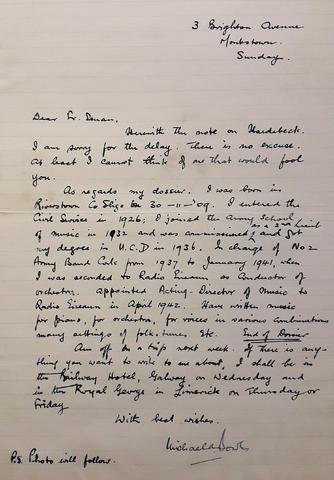 3 Brighton Avenue
Monkstown.
Sunday.
Dear Fr. Senan,
Herewith the note on Hardebeck.
I am sorry for the delay. There is no excuse.
At least I cannot think of one that would fool
you.
As regards my dossier. I was born in
Riverstown Co Sligo on 30-11-'09. I entered the
Civil Service in 1926; I joined the Army School
of Music in 1932 and was commissioned as a 2nd Lieut and got
my degree in U.C.D in 1936. In charge of No 2
Army Band Cork from 1937 to January 1941, when
I was seconded to Radio Eireann as Conductor of
orchestra. Appointed Acting-Director of Music to
Radio Eireann in April 1942. Have written music
for piano, for orchestra, for voices in various combinations
many settings of folk-tunes, Etc. End of Dossier
Am off on a trip next week. If there is any-
thing you want to write to me about, I shall be in
the Railway Hotel, Galway on Wednesday and
in the Royal George in Limerick on Thursday or
Friday
With best wishes.
Michael Bowles
P.S. Photo will follow.